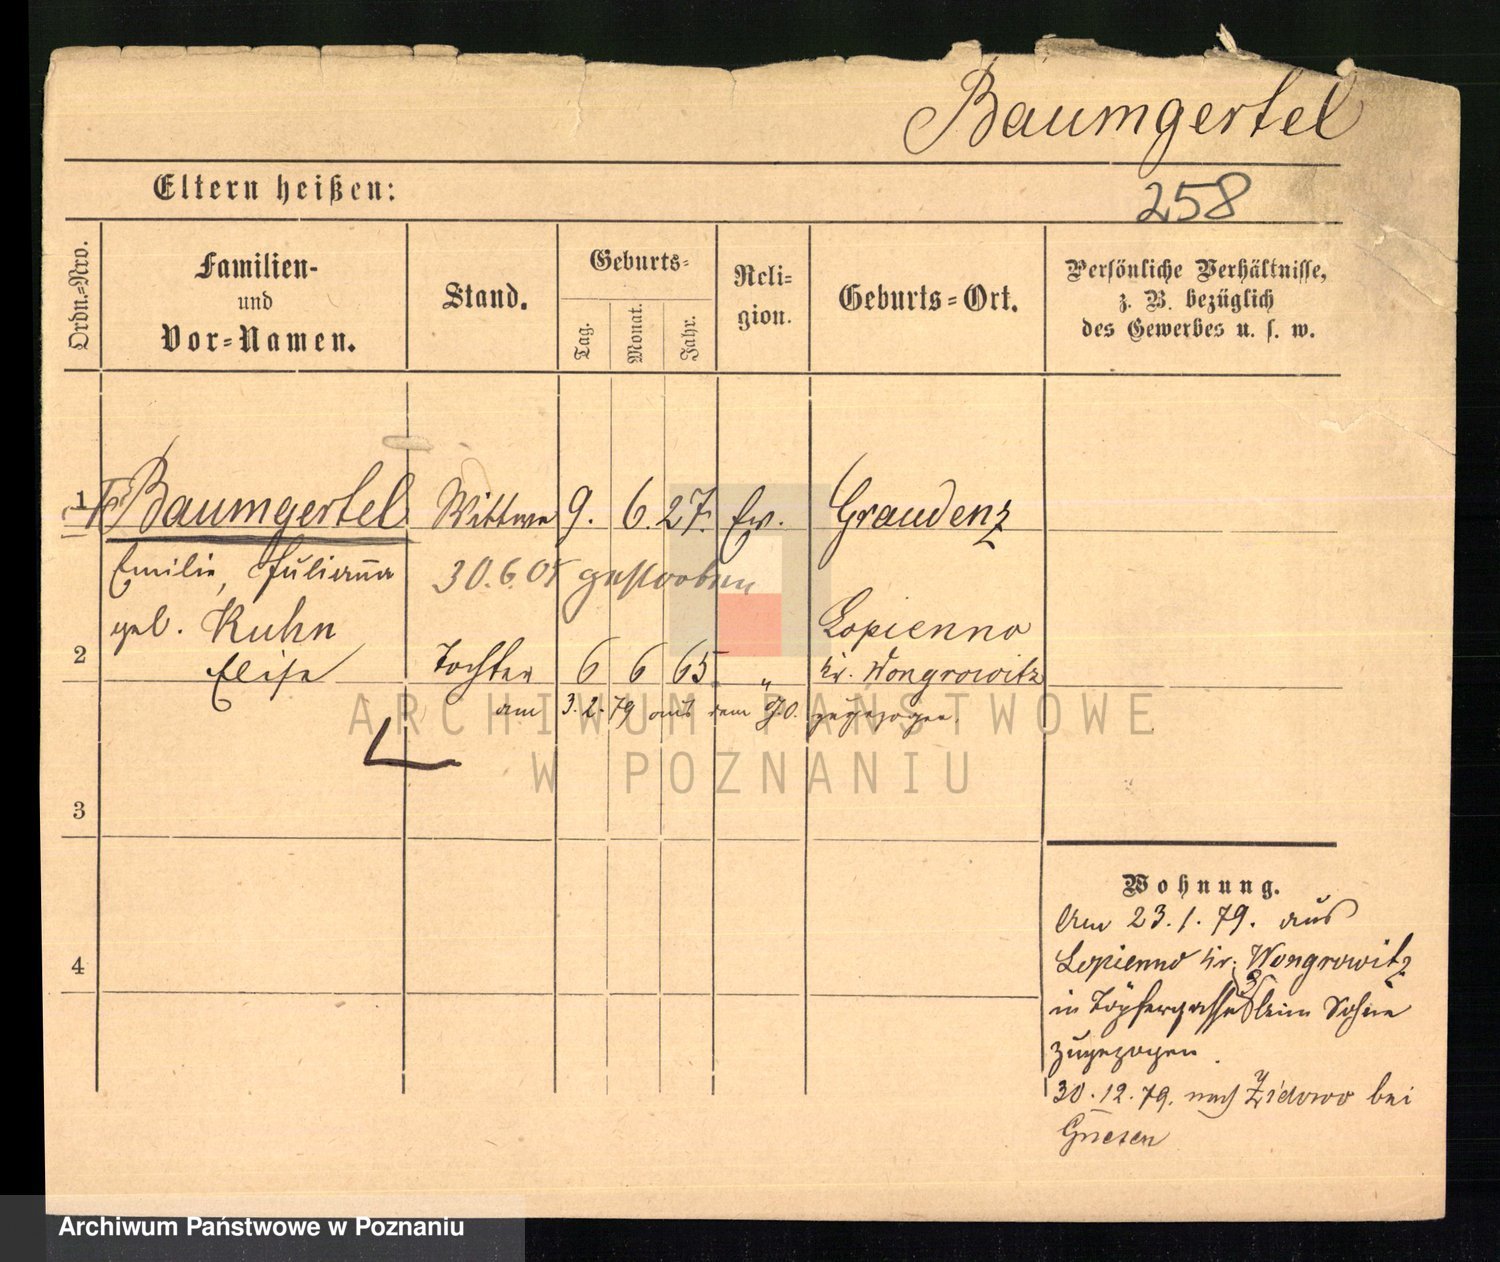 Baumgertel
Eltern heißen:
258
Ordn.-Nro.
Familien-
und
Vor-Namen.
Stand.
Geburts-
Tag.
Monat.
Jahr.
Reli-
gion.
Geburts-Ort.
Persönliche Verhältnisse,
z. B. bezüglich
des Gewerbes u. s. w.
1 Baumgertel Wittwe 9. 6. 27. Ev. Graudenz
Emilie, Julianna 30.6.05 gestorben
geb. Kuhn Lopienno
2 Elise Tochter 6 6 65. " Kr. Wongrowitz
am 3.2.79 aus dem zugezogen.
ARCHIWUM PAŃSTWOWE
W POZNANIU
3
4
Wohnung.
Am 23.1.79. aus
Lopienno Kr. Wongrowitz
in Töpfergasse 3 beim Sohne
zugezogen.
30.12.79. nach Zidowo bei
Gnesen
Archiwum Państwowe w Poznaniu